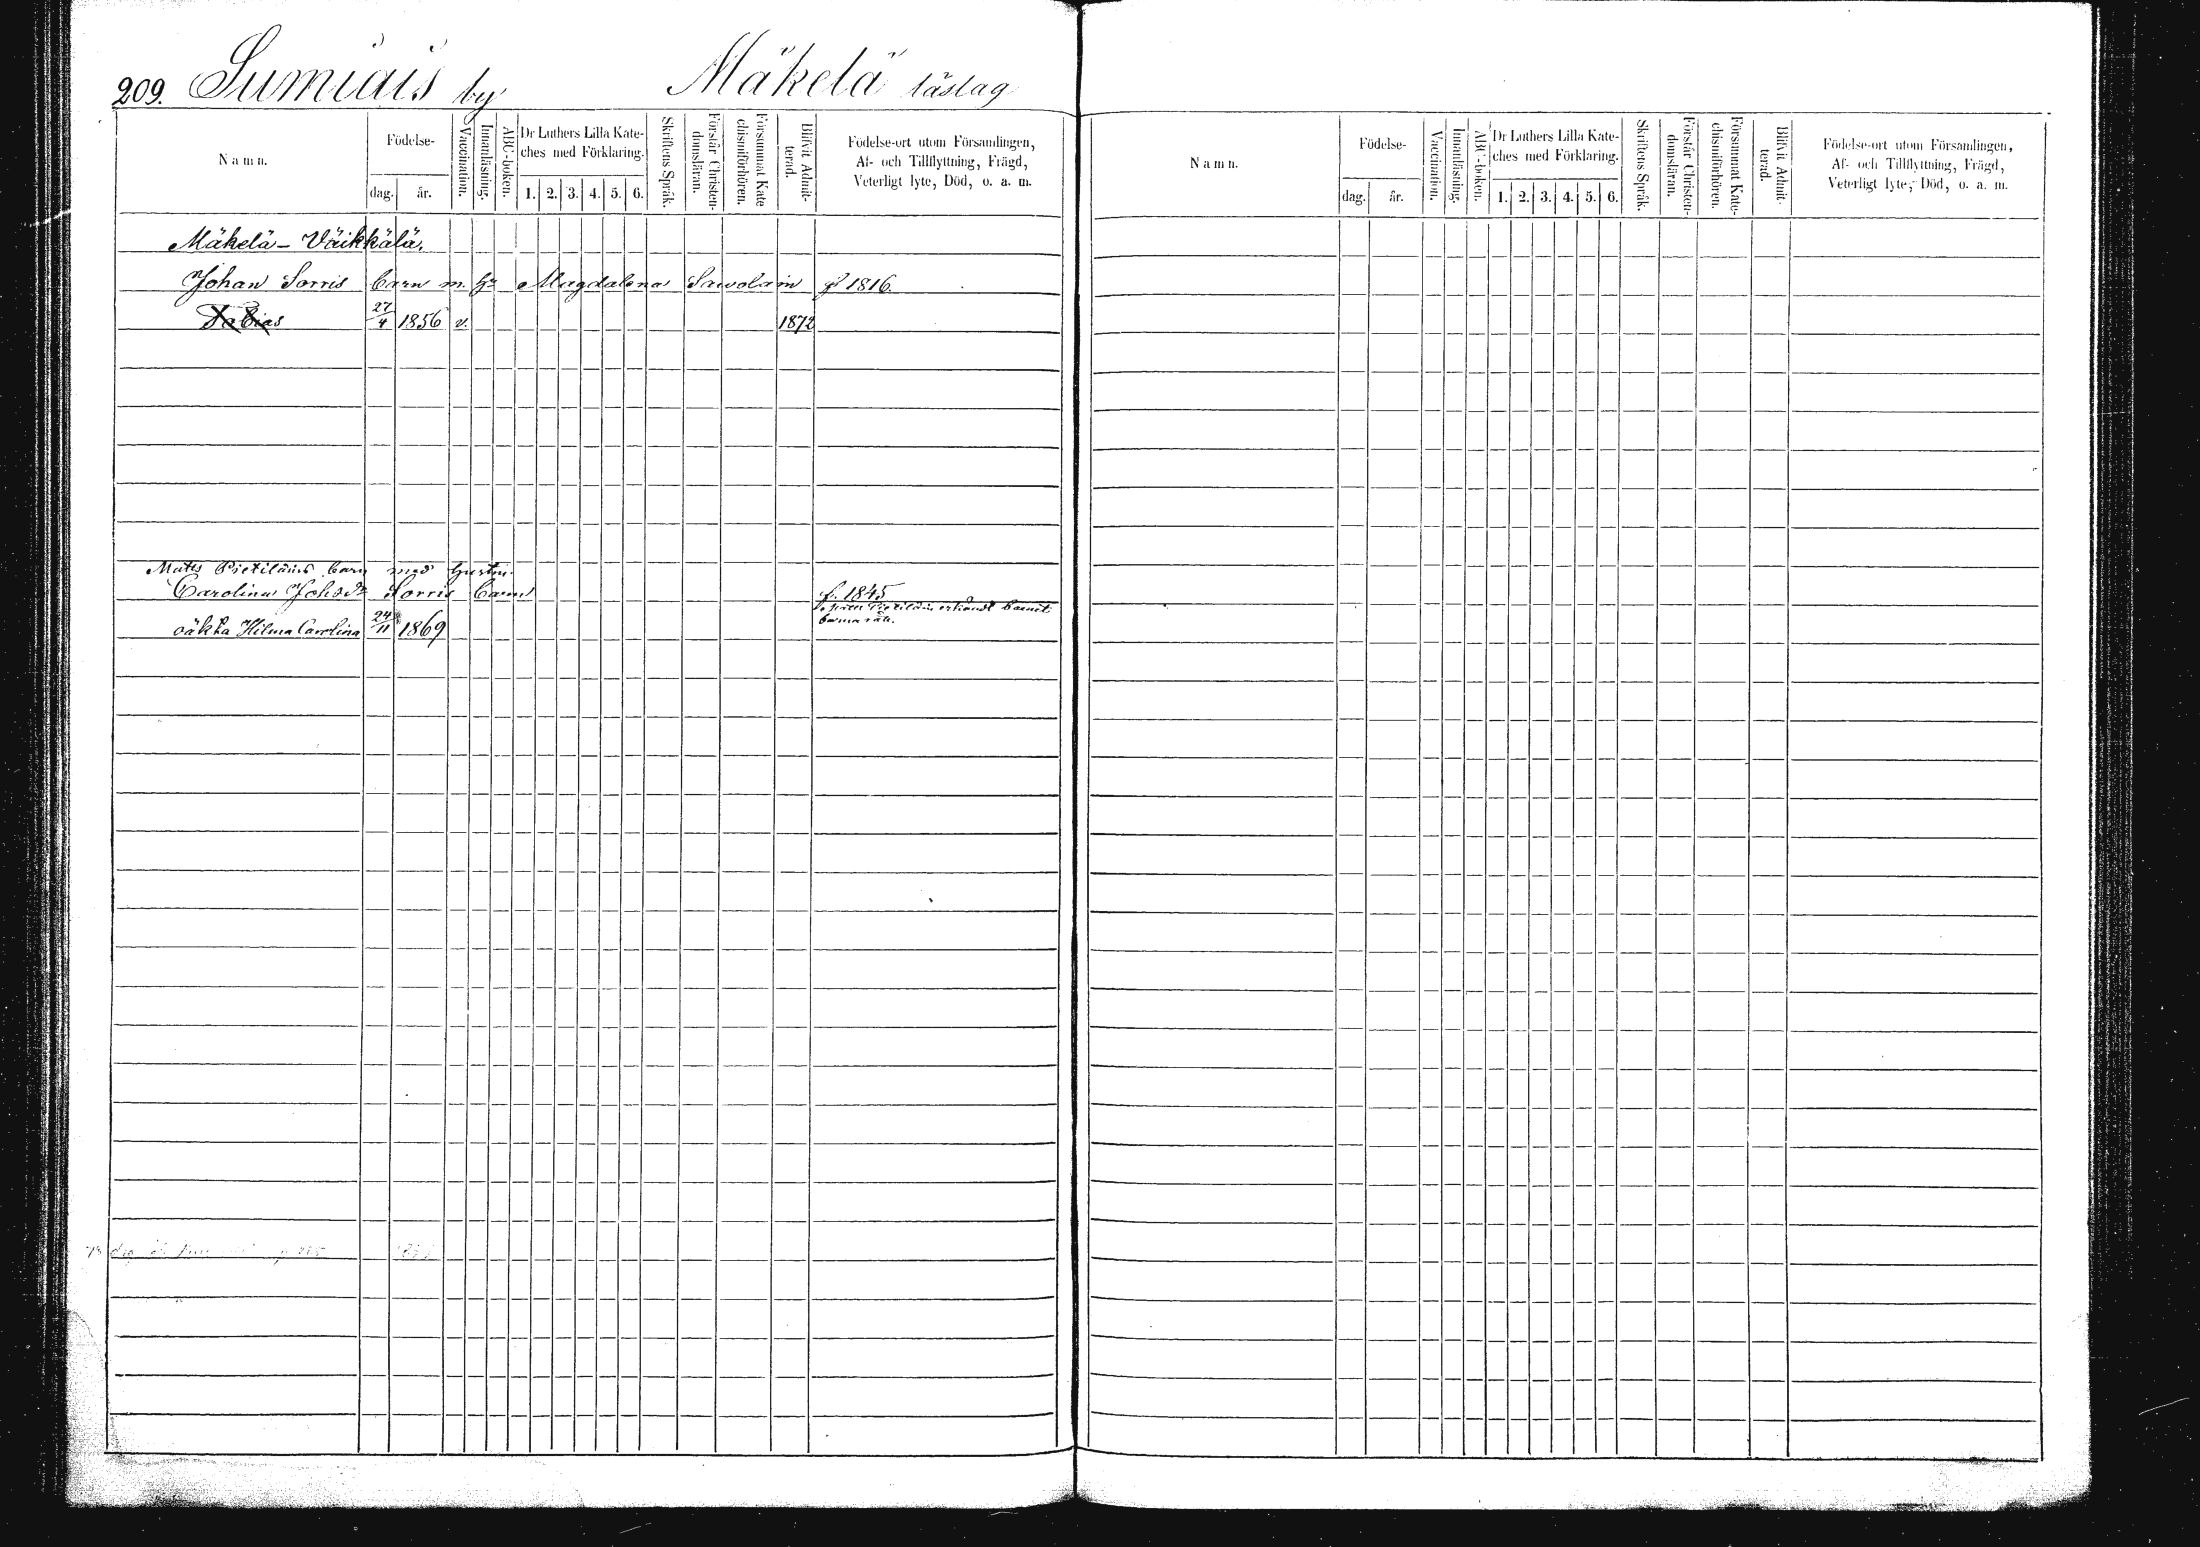 209. Sumiais by Mäkelä läslag
Namn.
Födelse-
dag.
år.
Vaccination.
Innanläsning.
ABC-boken.
Dr Luthers Lilla Kate-
ches med Förklaring.
1. 2. 3. 4. 5. 6.
Skriftens Språk.
Förstår Christen-
domsläran.
Försummat Kate
chismiförhören.
Blifvit Admit-
terad.
Födelse-ort utom Församlingen,
Af- och Tillflyttning, Frägd,
Veterligt lyte, Död, o. a. m.
Mäkelä - Väikkälä.
Johan Sorris barn m. Magdalena Sawolain 1816.
Tobias 27/4 1856 v. 1872
Matts Pietiläins barn med hustru
Carolina Johsdr Sorris barn f. 1845
oäkta Hilma Carolina 24/11 1869
Namn.
Födelse-
dag.
år.
Vaccination.
Innanläsning.
ABC-boken.
Dr Luthers Lilla Kate-
ches med Förklaring.
1. 2. 3. 4. 5. 6.
Skriftens Språk.
Förstår Christen-
domsläran.
Försummat Kate-
chismiförhören.
Blifvit Admit-
terad.
Födelse-ort utom Församlingen,
Af- och Tillflyttning, Frägd,
Veterligt lyte, Död, o. a. m.